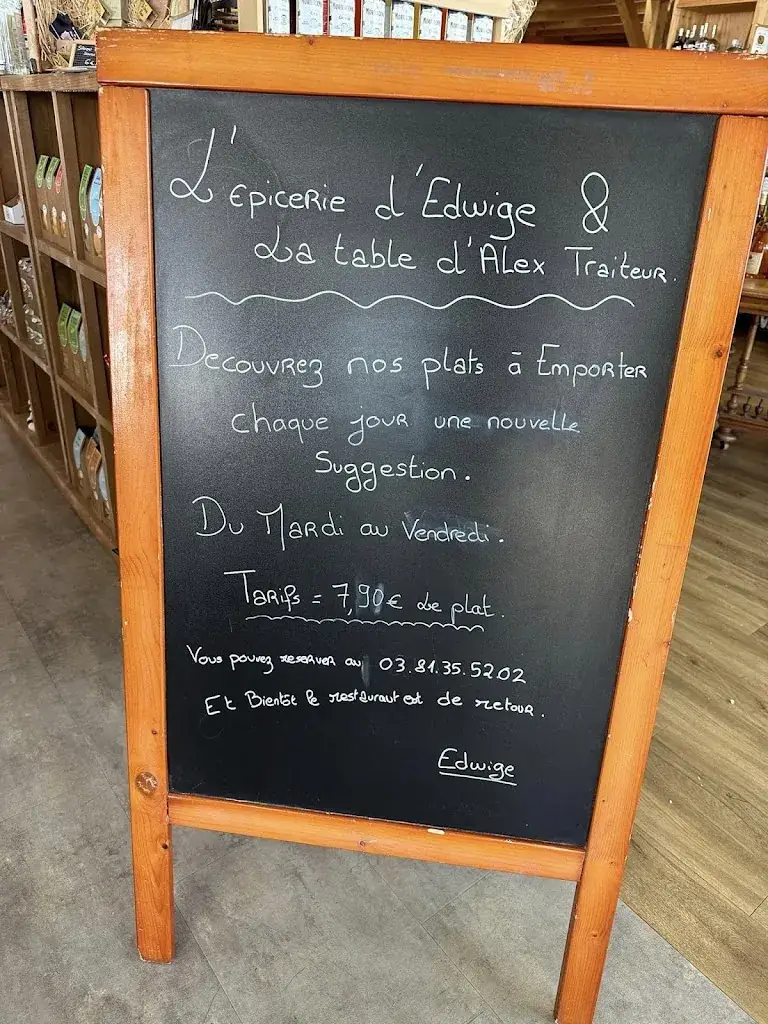 L'Epicerie d'Edwige &
La table d'Alex Traiteur.
Decouvrez nos plats à Emporter
chaque jour une nouvelle
Suggestion.
Du Mardi au Vendredi.
Tarifs = 7,90€ Le plat.
Vous pouvez reserver au 03.81.35.52.02
Et Bientôt le restaurant est de retour.
Edwige